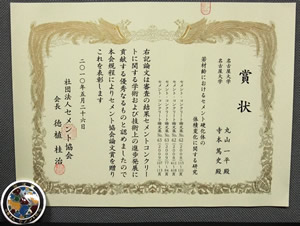 賞状
名古屋大学
丸山一平殿
名古屋大学
寺本篤史殿
若材齢におけるセメント硬化体の
体積変化に関する研究
右記論文は審査の結果セメントコンクリー
トに関する学術および技術上の進歩発展に
貢献する優秀なるものと認めましたので
本会規程によりセメント協会論文賞を贈り
これを表彰します
二〇一〇年五月二十六日
社団法人セメント協会
会長 徳植桂治